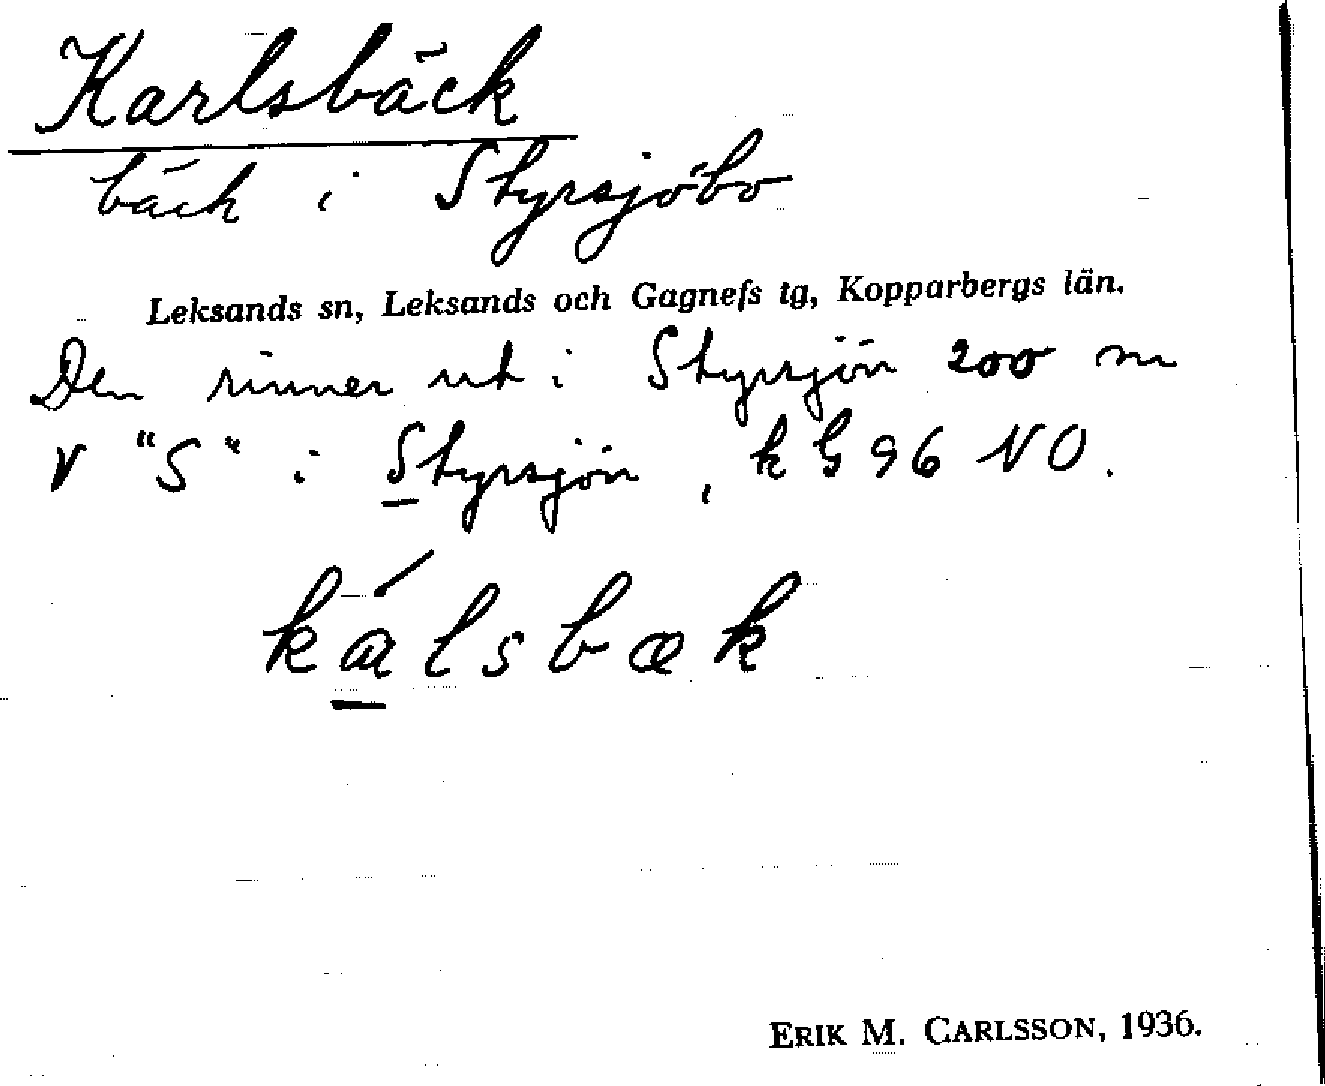 Karlsbäck
bäck i Styrsjöbo
Leksands sn, Leksands och Gagnefs tg, Kopparbergs län.
Den rinner ut i Styrsjön 200 m
V "S" i Styrsjön, kG 96 NO.
kálsbæk
ERIK M. CARLSSON, 1936.